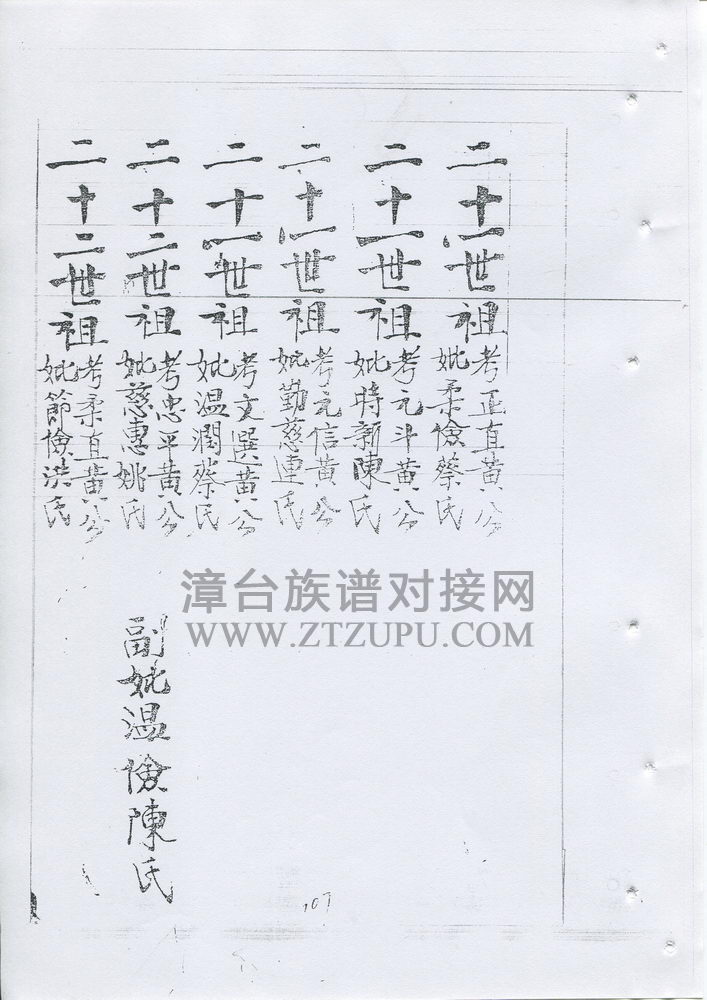 二十一世祖
考正直黃公
妣柔儉蔡氏
二十一世祖
考元斗黃公
妣時新陳氏
二十一世祖
考元信黃公
妣勤慈連氏
二十一世祖
考文選黃公
妣温潤蔡氏
二十二世祖
考忠平黃公
妣慈惠姚氏
副妣温儉陳氏
二十二世祖
考柔直黃公
妣節儉洪氏
漳台族谱对接网
WWW.ZTZUPU.COM
107